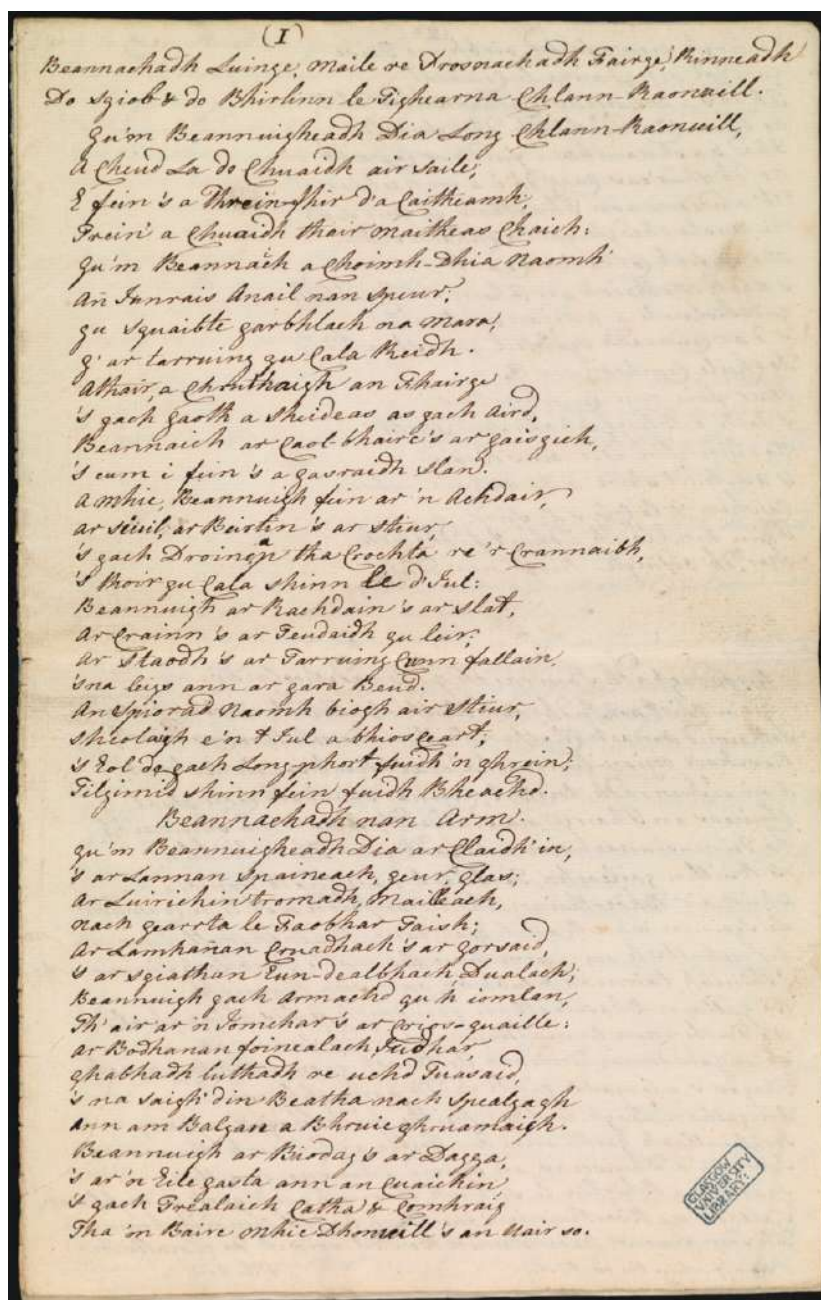 (I)
Beannachadh Luinge, maile re Brosnachadh Fairge, Rinneadh
Do sgiob & do Bhirlinn le Tighearna Chlann-Raonuill.
Gu'm Beannuigheadh Dia Long Chlann-Raonuill,
A Cheud La do Chuaidh air saile;
E fein 's a Threin-fhir d'a Caitheamh,
Trein' a Chuaidh thair maitheas Chaich:
Gu'm Beannach a Choimh-Dhia Naomh
An Iunrais Anail nan Speur;
Gu Sguaibte garbhlach na mara,
G' ar tarruing gu Cala Reidh.
Athair, a Chruthaigh an Fhairge
's gach gaoth a sheideas as gach Aird,
Beannaich ar Caol-bhairc 's ar gaisgich,
's cum i fein 's a gasraidh slan.
A Mhic, Beannuigh fein ar 'n Achdair,
Ar siuil, ar Beirtin 's ar stiur,
's gach Droinap tha Crochta re 'r Crannaibh,
's Thoir gu Cala shinn le d' Iul:
Beannuigh ar Rachdain 's ar slat,
Ar Crainn 's ar Teudaidh gu leir;
Ar Staodh 's ar Tarruing Cum fallain,
'sna leigs ann ar gara Beud.
An Spiorad Naomh biogh air Stiur,
Sheolaigh e'n t Iul a bhios Ceart;
's Eol do gach Long-phort fuidh 'n ghrein;
Tilgimid shinn fein fuidh Bheachd.
Beannachadh nan Arm.
Gu'm Beannuigheadh Dia ar Claidh'in,
's ar Lannan Spaineach, geur, glas;
Ar Luirichin tromadh, mailleach,
nach gearrta le Faobhar Taish;
Ar Lamhañan Cruadhach 's ar gorsaid,
's ar sgiathan Eun-dealbhach, Dualach;
Beannuigh gach Armachd gu h iomlan,
Th' air ar 'n Iomchar 's ar Crios-guaille:
Ar Bodhanan foinealach, Iudhar,
ghabhadh luthadh re uchd Tuasaid,
's na saigh'din Beatha nach spealgagh
Ann am Balgan a Bhruic ghruamaigh.
Beannuigh ar Biodag 's ar Dagga,
's ar 'n Eile gasta ann an Cuaichin
's gach Trealaich Catha & Comhraig
Tha 'm Bairc Mhic Dhomuill 's an Uair so.
GLASGOW
UNIVERSITY
LIBRARY: